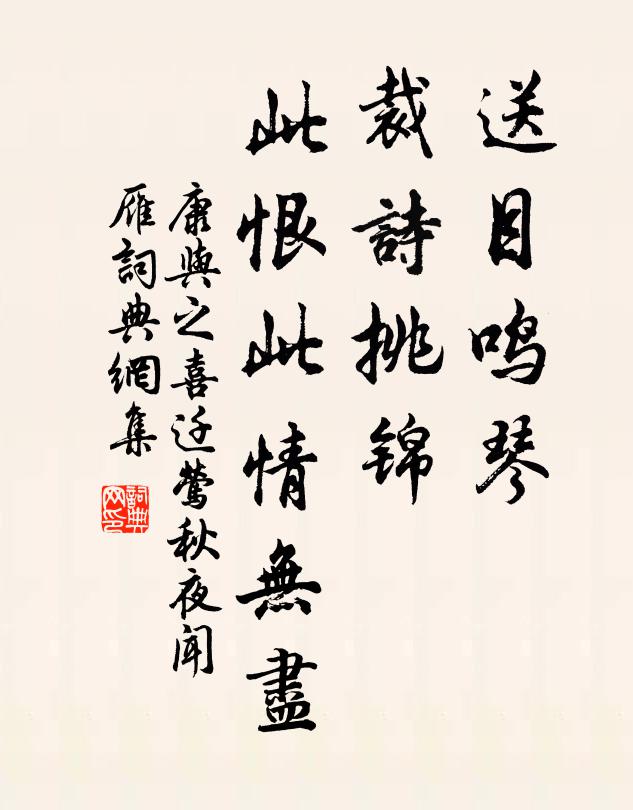 送目鸣琴
裁詩挑锦
此恨此情無盡
康與之喜迁莺秋夜聞
雁詞典網集
詞典网印